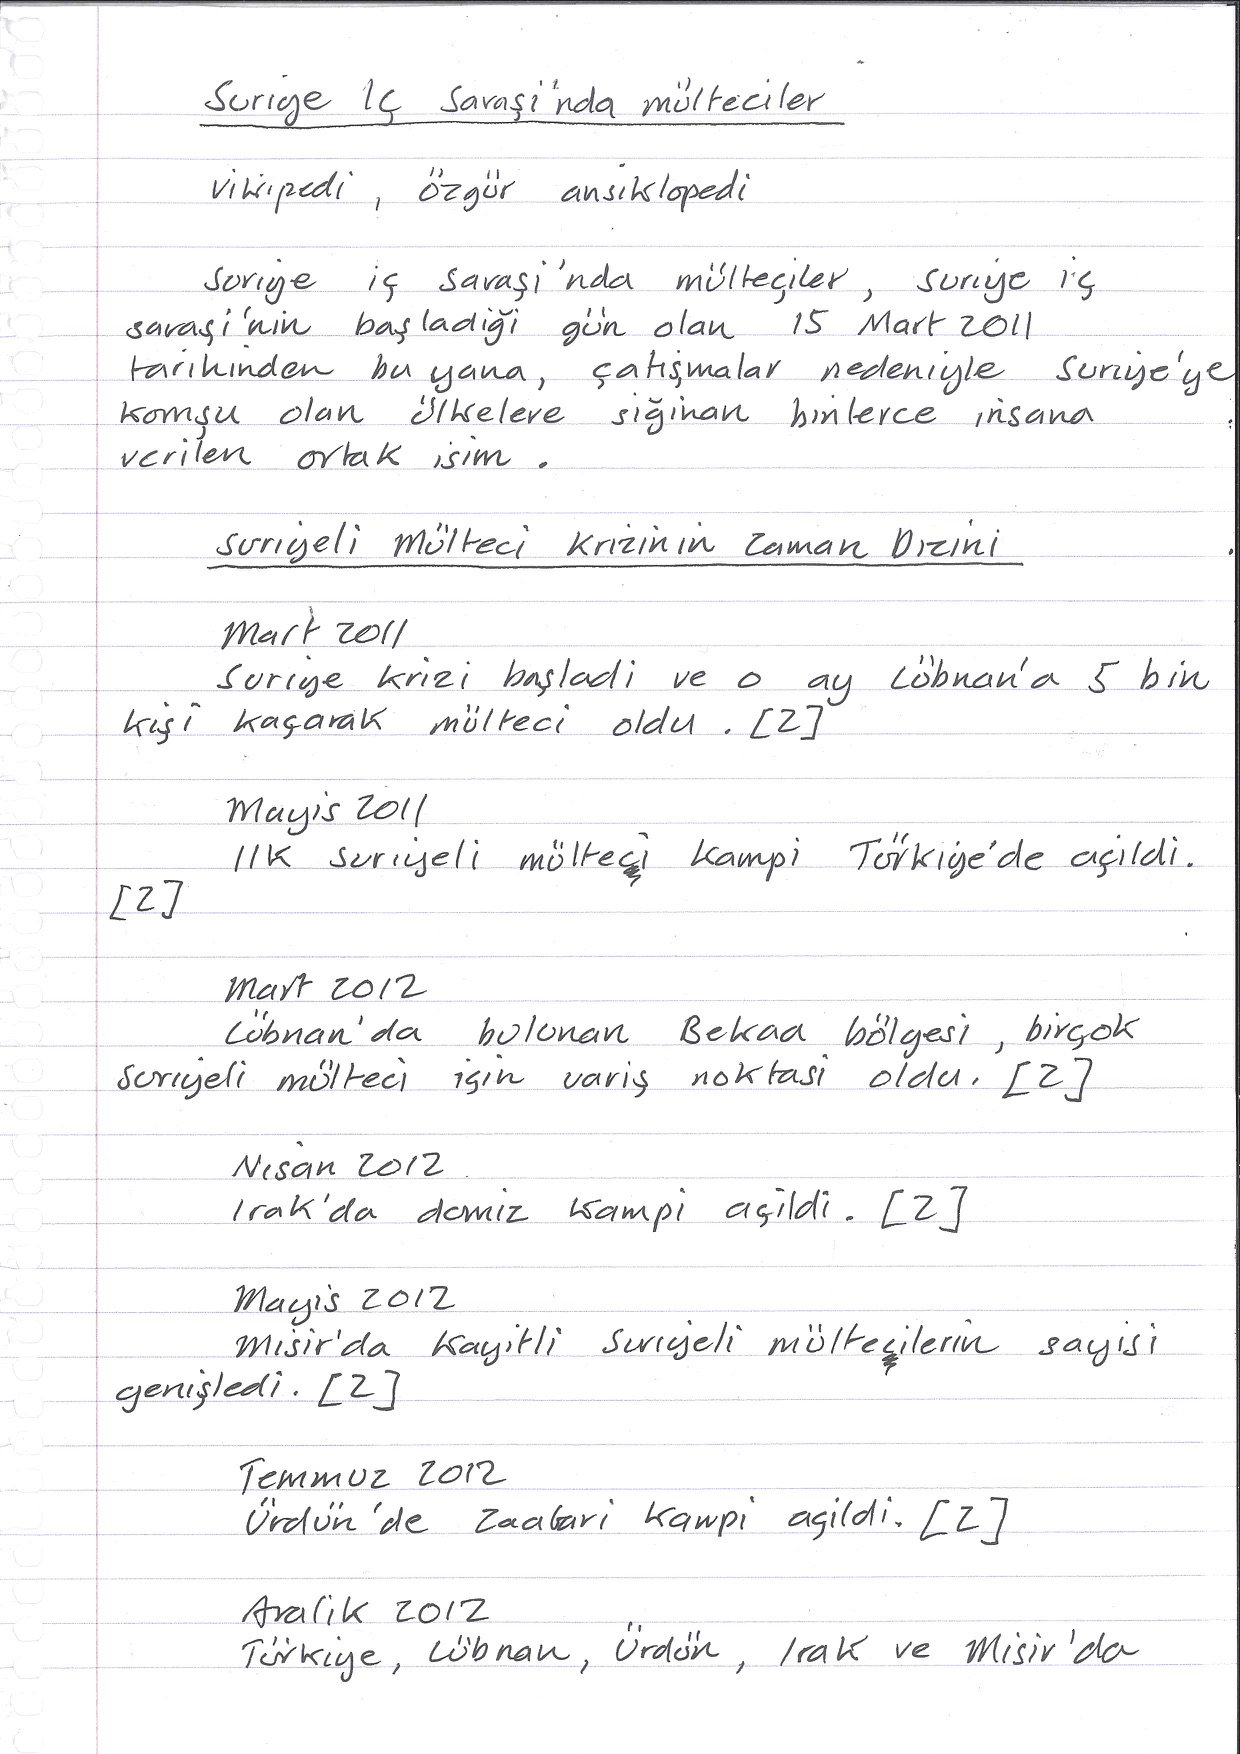 Suriye Iç Savaşi'nda mülteciler
Vikipedi, özgür ansiklopedi
Suriye iç savaşi'nda mülteçiler, suriye iç
savaşi'nin başladiği gün olan 15 Mart 2011
tarihinden bu yana, çatişmalar nedeniyle Suriye'ye
komşu olan ülkelere siğinan binlerce insana
verilen ortak isim.
Suriyeli Mülteci Krizinin Zaman Dizini
Mart 2011
Suriye krizi başladi ve o ay Lübnan'a 5 bin
kişi kaçarak mülteci oldu. [2]
Mayis 2011
Ilk suriyeli mülteçi kampi Türkiye'de açildi.
[2]
Mart 2012
Lübnan'da bulunan Bekaa bölgesi, birçok
suriyeli mülteci için variş noktasi oldu. [2]
Nisan 2012
Irak'da domiz kampi açildi. [2]
Mayis 2012
Misir'da kayitli Suriyeli mülteçilerin sayisi
genişledi. [2]
Temmuz 2012
Ürdün'de Zaatari kampi açildi. [2]
Aralik 2012
Türkiye, Lübnan, Ürdün, Irak ve Misir'da